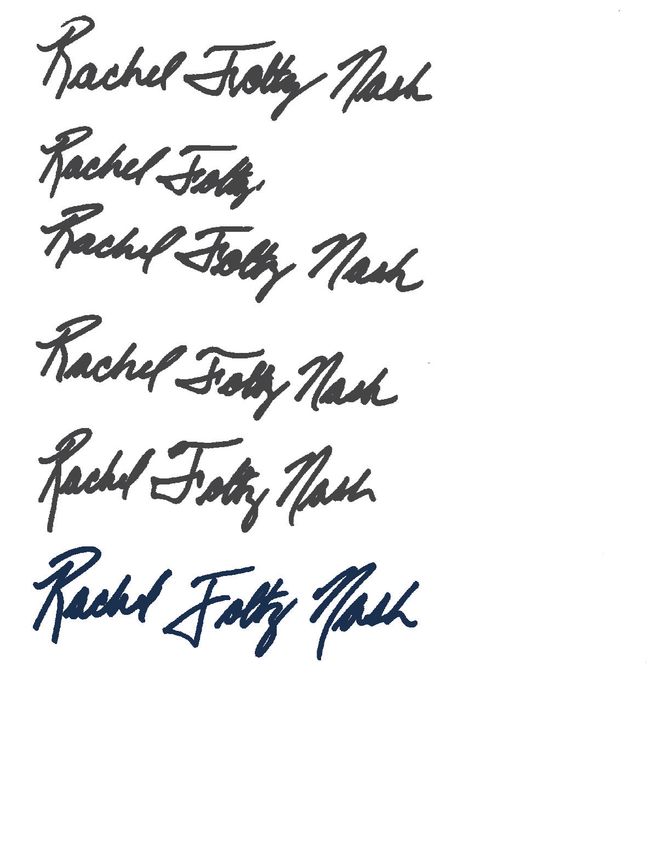 Rachel Foltz Nash
Rachel Foltz
Rachel Foltz Nash
Rachel Foltz Nash
Rachel Foltz Nash
Rachel Foltz Nash